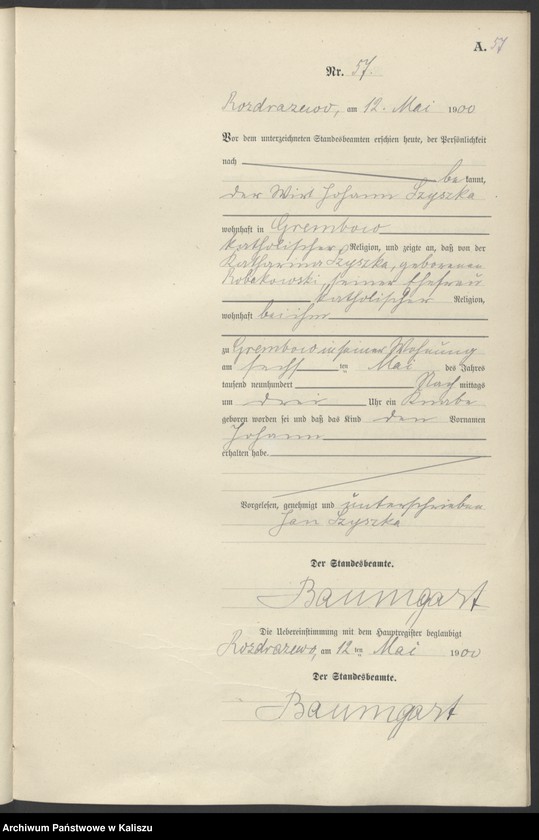 A. 57
Nr. 57.
Rozdrazewo, am 12. Mai 1900
Vor dem unterzeichneten Standesbeamten erschien heute, der Persönlichkeit
nach
be kannt,
der Wirt Johann Szyszka
wohnhaft in Grembow
katholischer Religion, und zeigte an, daß von der
Katharina Szyszka, geborenen
Robakowski, seiner Ehefrau
katholischer Religion,
wohnhaft bei ihm
zu Grembow in seiner Wohnung
am sechs ten Mai des Jahres
tausend neunhundert Nach mittags
um drei Uhr ein Knabe
geboren worden sei und daß das Kind den Vornamen
Johann
erhalten habe.
Vorgelesen, genehmigt und unterschrieben
Jan Szyszka
Der Standesbeamte.
Baumgart
Die Uebereinstimmung mit dem Hauptregister beglaubigt
Rozdrazewo, am 12 ten Mai 1900
Der Standesbeamte.
Baumgart
Archiwum Państwowe w Kaliszu